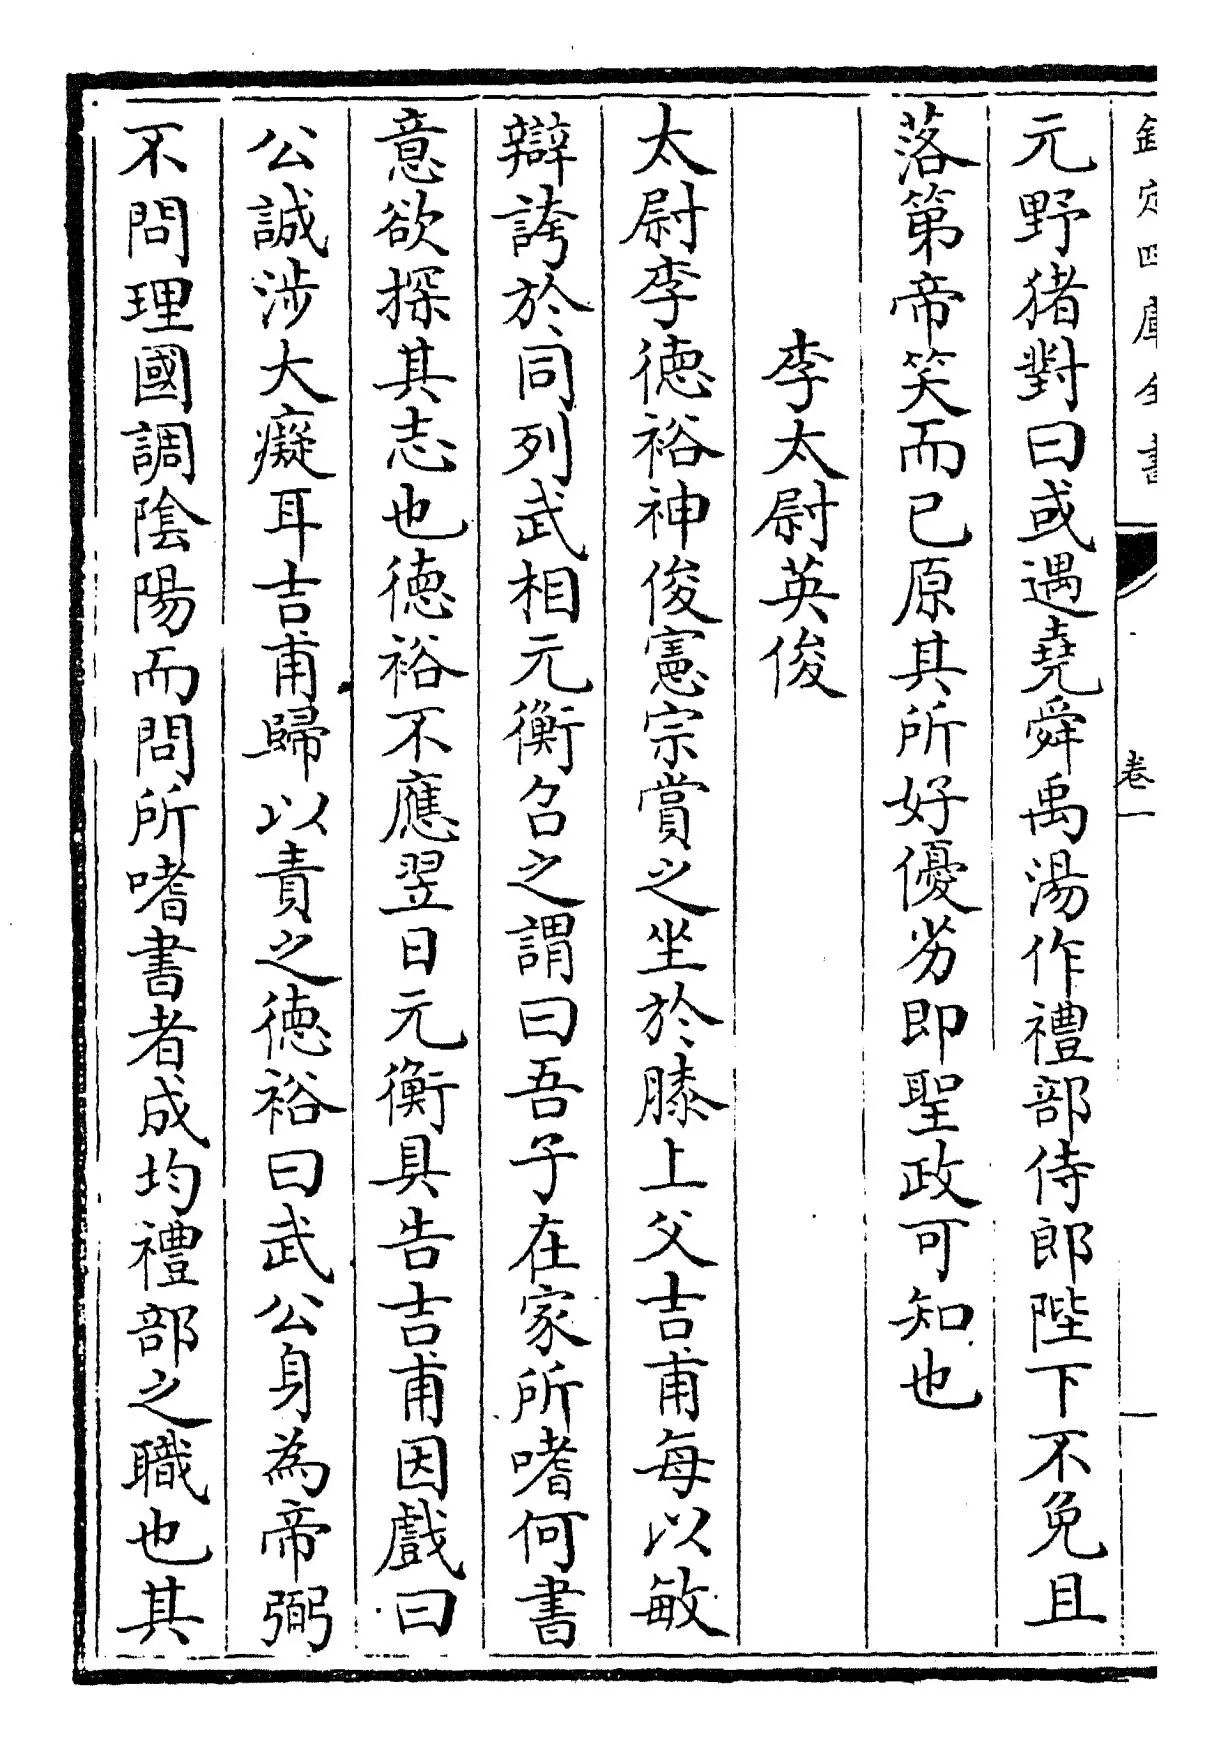 欽定四庫全書
卷一
元野猪對曰或遇堯舜禹湯作禮部侍郎陛下不免且
落第帝笑而已原其所好優劣即聖政可知也
李太尉英俊
太尉李德裕神俊憲宗賞之坐於膝上父吉甫每以敏
辯誇於同列武相元衡召之謂曰吾子在家所嗜何書
意欲探其志也德裕不應翌日元衡具告吉甫因戲曰
公誠涉大癡耳吉甫歸以責之德裕曰武公身為帝弼
不問理國調陰陽而問所嗜書者成均禮部之職也其